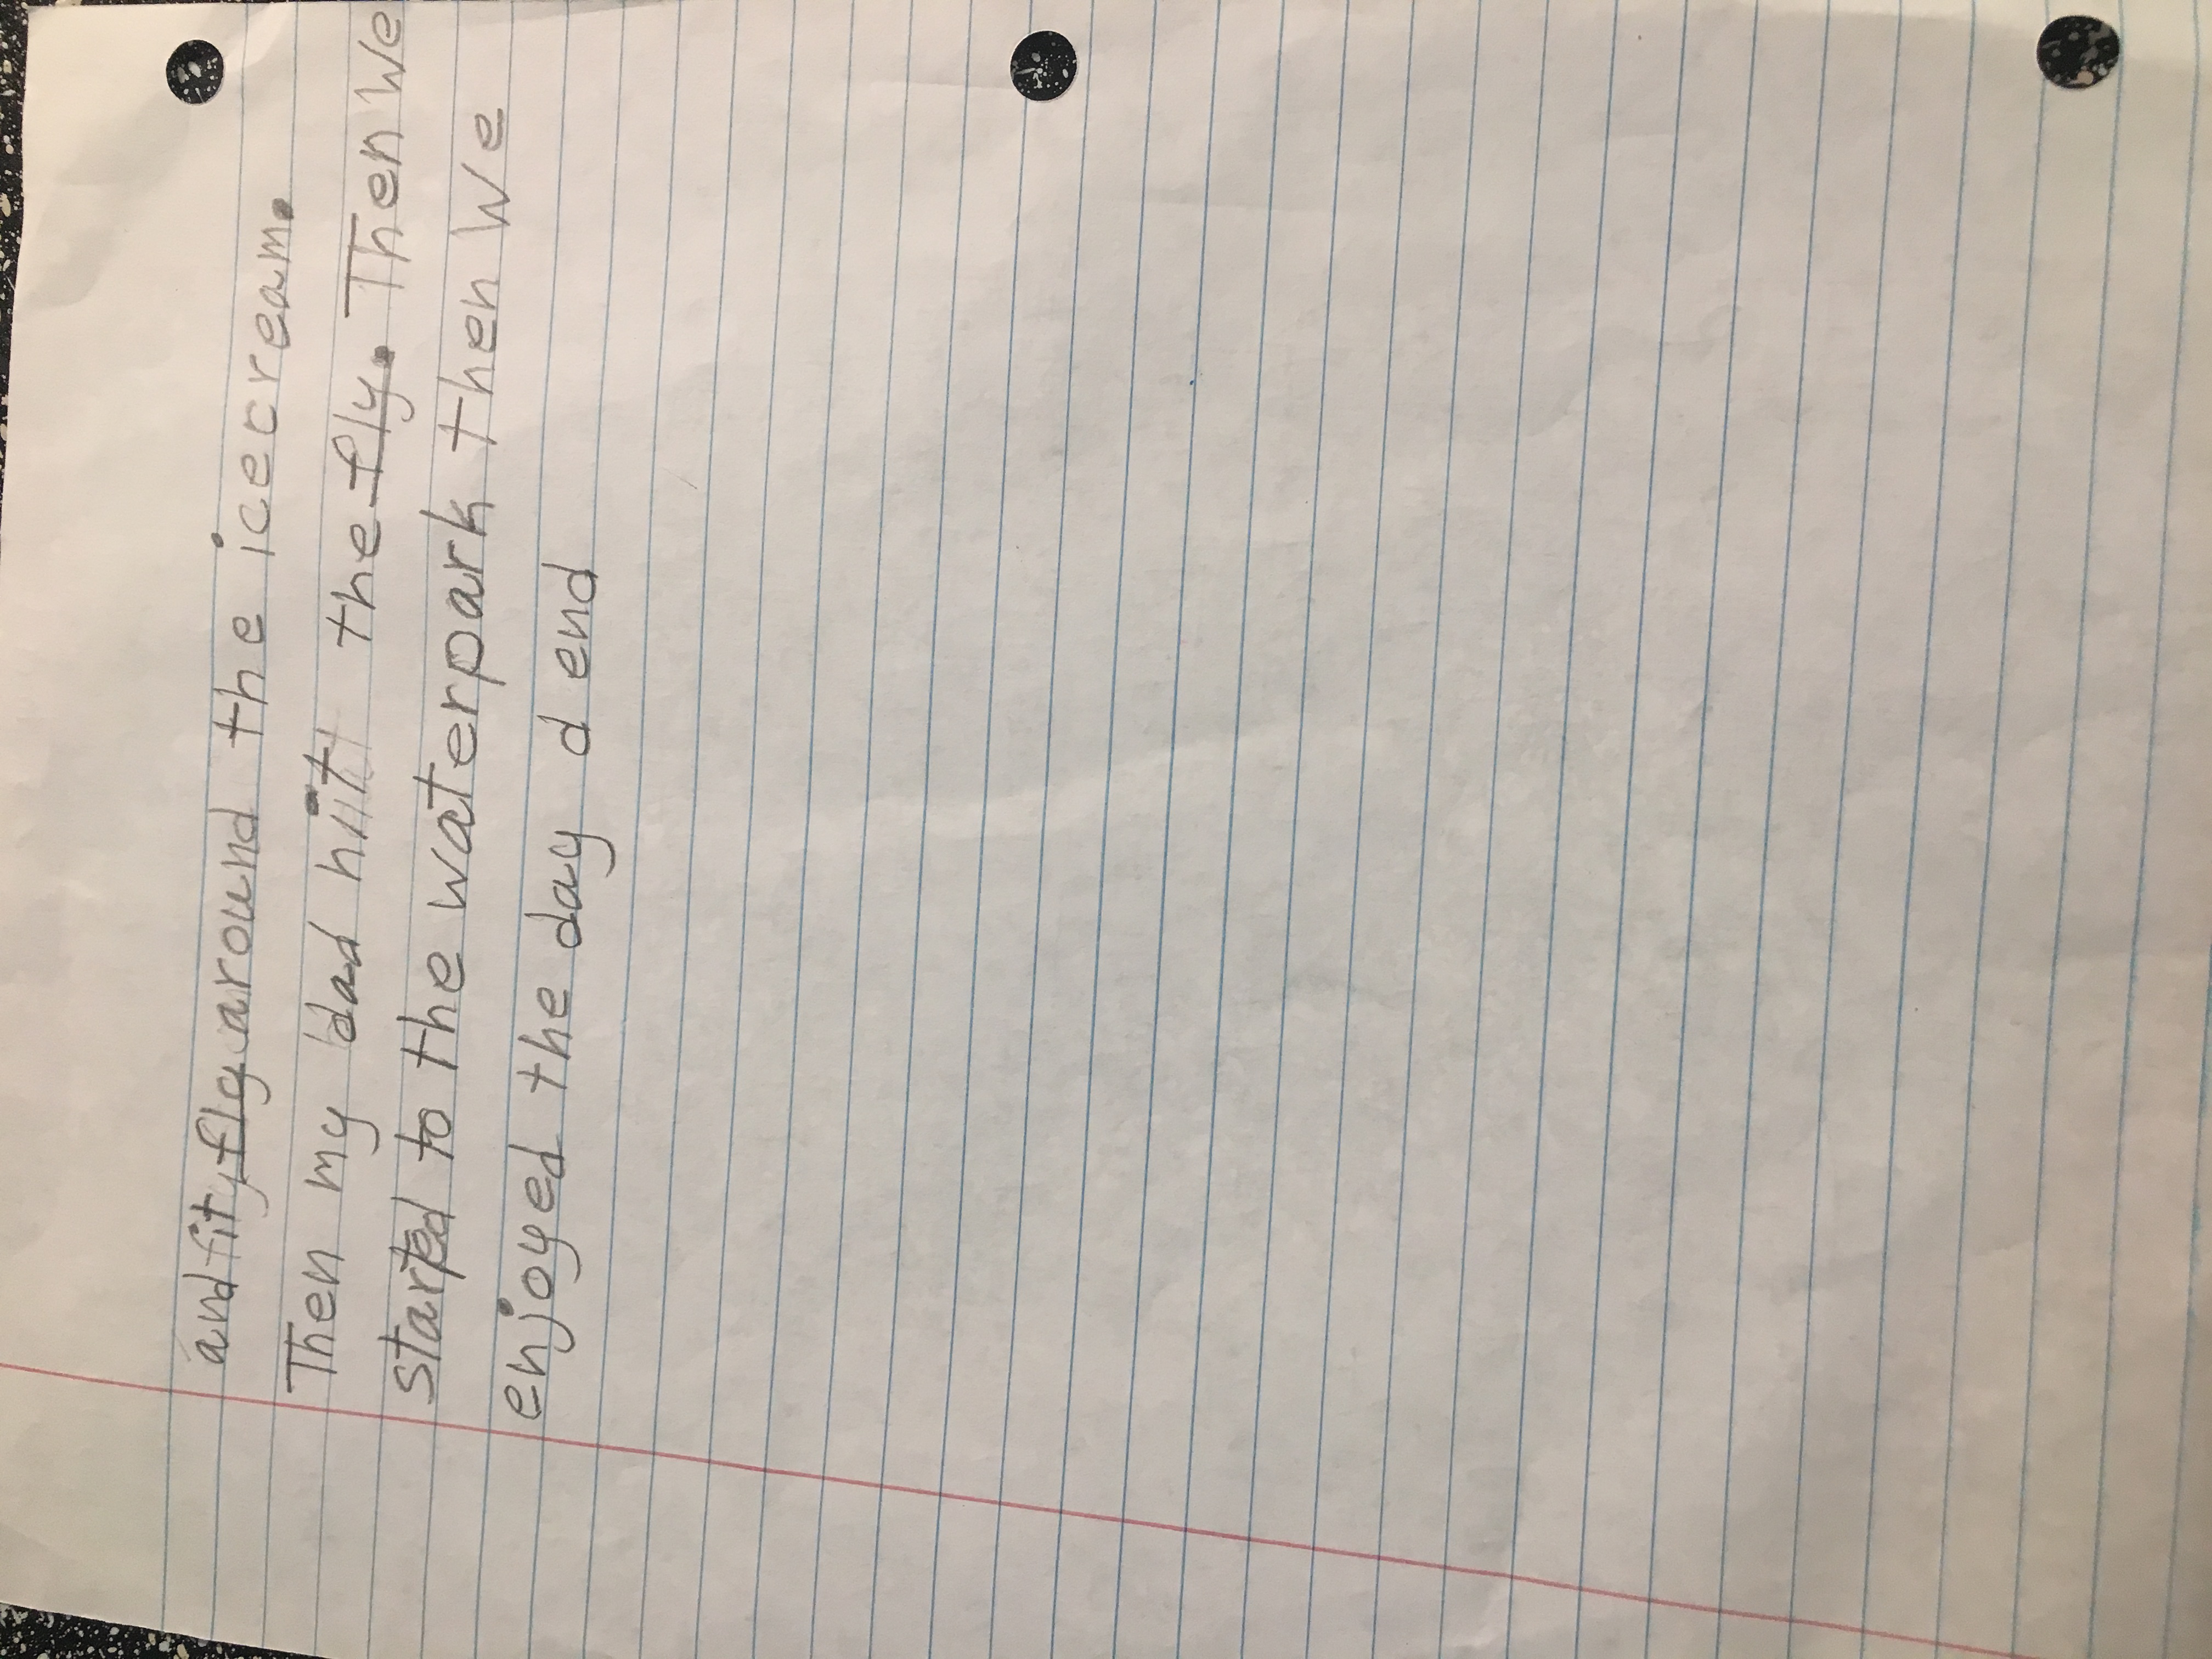 and fity fly around the icecream.
Then my dad hit the fly. Then We
started to the waterpark then We
enjoyed the day d end